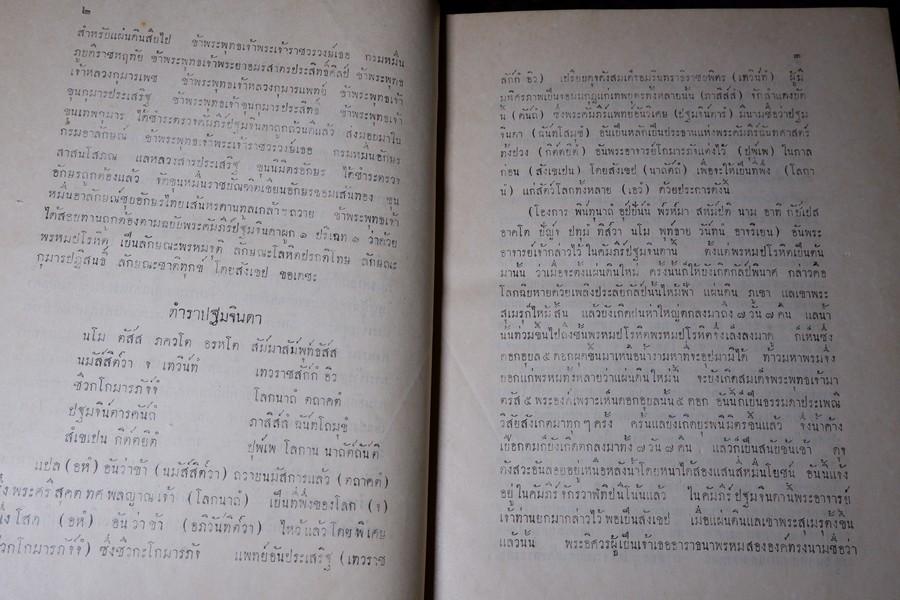 ๒
สำหรับแผ่นดินสืบไป ข้าพระพุทธเจ้าพระเจ้าราชวรวงษ์เธอ กรมหมื่น
ภูบดีราชหฤทัย ข้าพระพุทธเจ้าพระยาอมรสาตรประสิทธิ์ศิลป์ ข้าพระพุทธ
เจ้าหลวงกุมารเพช ข้าพระพุทธเจ้าหลวงกุมารแพทย์ ข้าพระพุทธเจ้า
ขุนกุมารประเสริฐ ข้าพระพุทธเจ้าขุนกุมารประสิทธิ์ ข้าพระพุทธเจ้า
ขุนเทพกุมาร ได้ชำระตรวจคัมภีร์ปฐมจินดาถูกถ้วนดีแล้ว ส่งมอบมาใน
กรมอาลักษณ์ ข้าพระพุทธเจ้าพระเจ้าราชวรวงษ์เธอ กรมหมื่นอักษร
สาสนโสภณ แลหลวงสารประเสริฐ ขุนนิมิตรอักษร ได้ชำระตรวจ
อักษรถูกต้องแล้ว จัดขุนหมื่นราชบัณฑิตเขียนอักษรขอมเส้นทอง ขุน
หมื่นอาลักษณ์ชุบอักษรไทยเส้นหรดานทูลเกล้าฯถวาย ข้าพระพุทธเจ้า
ได้สอบทานถูกต้องตามฉบับพระคัมภีร์ปฐมจินดาผูก ๑ ปริเฉท ๑ ว่าด้วย
พรหมปโรหิต เป็นลักษณะพรหมจุติ ลักษณะโลหิตปรกติโทษ ลักษณะ
กุมารปฏิสนธิ์ ลักษณะชาติทุกข์ โดยสังเขป ขอเดชะ
ตำราปฐมจินดา
นโม ตัสส ภควโต อรหโต สัมมาสัมพุทธัสส
นมัสสิตวา จ เทวินทํ เทวราชสักกํ อิว
ชิวกโกมารภัจจํ โลกนาถํ ตถาคตํ
ปฐมจินตารคันถํ ภาสิสสํ ฉันทโกมุชํ
สังเขเปน กิตตยิตํ ปุพเพ โลกาน นาถัตถันติ
แปล (อหํ อันว่าข้า (นมัสสิตวา) ถวายนมัสการแล้ว (ตถาคตํ)
ซึ่งพระศรีสุคตทศพลญาณเจ้า (โลกนาถํ) เป็นที่พึ่งของโลก (จ)
โสด (อหํ) อันว่าข้า (อภิวันทิตวา) ไหว้แล้วโดยพิเศษ
(ชิวกโกมารภัจจํ) ซึ่งชิวกะโกมารภัจ แพทย์อันประเสริฐ (เทวราช
๓
สักกํ อิว) เปรียบดุจดังสมเด็จอมรินทราธิราชบพิตร (เทวินทํ) ผู้มี
มหิศรภาพเป็นจอมมกุฎแก่เทพยดาทั้งหลายนั้น (ภาสิสสํ) จักสำแดงบัด
นี้ (คันถํ) ซึ่งพระคัมภีร์แพทย์อันวิเศษ (ปฐมจินตาร) มีนามชื่อว่าปฐม
จินดา (ฉันทโสมุชํ) อันเป็นหลักเป็นประธานแห่งพระคัมภีร์ฉันทศาสตร์
ทั้งปวง (กิตตยิตํ) อันพระอาจารย์โกมารภัจแต่งไว้ (ปุพเพ) ในกาล
ก่อน (สังเขเปน) โดยสังเขป (นาถัตถํ) เพื่อจะให้เป็นที่พึ่ง (โลกา
นํ) แก่สัตว์โลกทั้งหลาย (เอวํ) ด้วยประการดังนี้
อาจารย์เจ้ากล่าวไว้ ในคัมภีร์ปฐมจินดานี้ ตั้งแต่พรหมปโรหิตเป็นต้น
มานั้น ว่าเมื่อจะตั้งแผ่นดินใหม่ ครั้งนั้นก็ให้บังเกิดกัลป์พินาศ กล่าวคือ
โลกฉิบหายด้วยเพลิงประลัยกัลป์นั้นไหม้ฟ้า แผ่นดิน ภูเขา แลเขาพระ
สุเมรุก็ไหม้สิ้น แล้วบังเกิดฝนห่าใหญ่ตกลงมาถึง ๗ วัน ๗ คืน แลน้ำ
นั้นท่วมขึ้นไปถึงชั้นพรหมปโรหิตพรหมปโรหิตจึ่งเล็งลงมาดู ก็เห็นซึ่ง
ดอกอุบล ๕ ดอกผุดขึ้นมาเหนือน้ำงามหาที่จะอุปมามิได้ ท้าวมหาพรหมจึง
บอกแก่พรหมทั้งหลายว่าแผ่นดินใหม่นี้ จะบังเกิดสมเด็จพระพุทธเจ้ามา
ตรัส ๕ พระองค์เพราะเห็นดอกอุบลนั้น ๕ ดอก อันนี้ก็เป็นธรรมดาประเพณี
วิสัยสังเกตมาทุก ๆ ครั้ง ครั้นแลบังเกิดบุรพนิมิตขึ้นแล้ว จึ่งน้ำค้าง
เยือกดมก็บังเกิดตกลงมาทั้ง ๗ วัน ๗ คืน แล้วก็เป็นสนับข้นเข้า ดุจ
ดังสวะอันลอยอยู่เหนือหลังน้ำโดยหนาได้สองแสนสี่หมื่นโยชน์ อันนี้แจ้ง
อยู่ในคัมภีร์จักรวาฬทีปนีโน้นแล้ว ในคัมภีร์ปฐมจินดานี้พระอาจารย์
เจ้าท่านยกมากล่าวไว้ พอเป็นสังเขป เมื่อแผ่นดินแลเขาพระสุเมรุตั้งขึ้น
แล้วนั้น พระอิศวรผู้เป็นเจ้าเธออาราธนาพรหมสององค์ทรงนามชื่อว่า